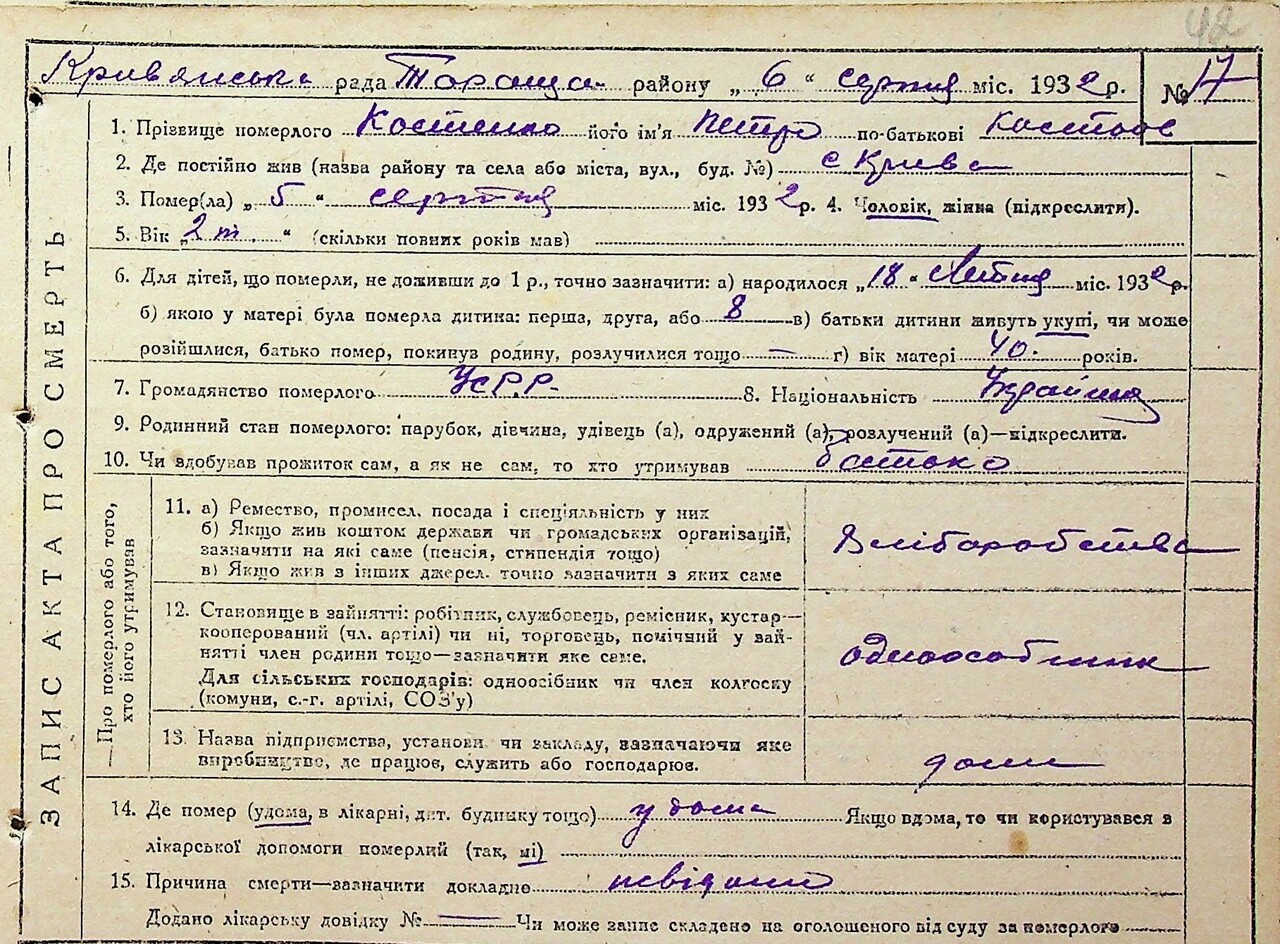 42
Кривянська рада Тараща району „ 6 “ серпня міс. 1932 р. № 17
1. Прізвище померлого Костенко його ім'я Петро по-батькові Костьов
2. Де постійно жив (назва району та села або міста, вул., буд. №) с Крива
3. Помер(ла) „ 5 “ серпня міс. 1932 р. 4. Чоловік, жінка (підкреслити).
5. Вік „ 2 т. “ (скільки повних років мав)
6. Для дітей, що померли, не доживши до 1 р., точно зазначити: а) народилося „ 18 “ Липня міс. 1932 р.
б) якою у матері була померла дитина: перша, друга, або 8 в) батьки дитини живуть укупі, чи може
розійшлися, батько помер, покинув родину, розлучилися тощо — г) вік матері 40. років.
7. Громадянство померлого УСРР. 8. Національність
9. Родинний стан померлого: парубок, дівчина, удівець (а), одружений (а), розлучений (а)—підкреслити.
10. Чи здобував прожиток сам, а як не сам, то хто утримував батько
ЗАПИС АКТА ПРО СМЕРТЬ
—Про померлого або того,
хто його утримував
11. а) Ремество, промисел, посада і спеціяльність у них
б) Якщо жив коштом держави чи громадських організацій,
зазначити на які саме (пенсія, стипендія тощо)
в) Якщо жив з інших джерел, точно зазначити з яких саме
12. Становище в зайнятті: робітник, службовець, ремісник, кустар—
кооперований (чл. артілі) чи ні, торговець, помічний у зай-
нятті член родини тощо—зазначити яке саме.
Для сільських господарів: одноосібник чи член колгоспу
(комуни, с.-г. артілі, СОЗ'у)
одноособник
13. Назва підприємства, установи чи закладу, зазначаючи яке
виробництво, де працює, служить або господарює.
дома
14. Де помер (удома, в лікарні, дит. будинку тощо) у дома Якщо вдома, то чи користувався в
лікарської допомоги померлий (так, ні)
15. Причина смерти—зазначити докладно невідомо
Додано лікарську довідку № — Чи може запис складено на оголошеного від суду за померлого